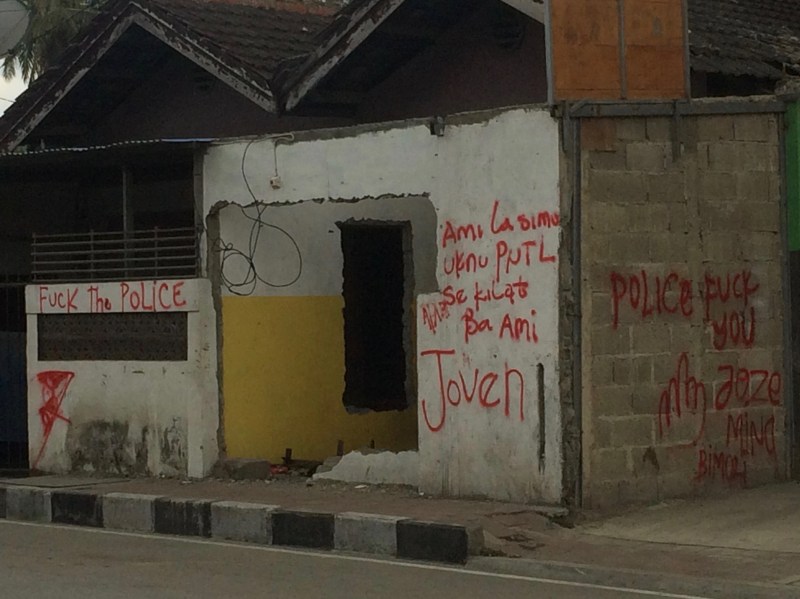 FUCK Tho POLICE
Ami La simu
uknu PNTL
Se kilat
Ba Ami
Joven
POLICE FUCK
YOU
aeze
MINA
BIMORI